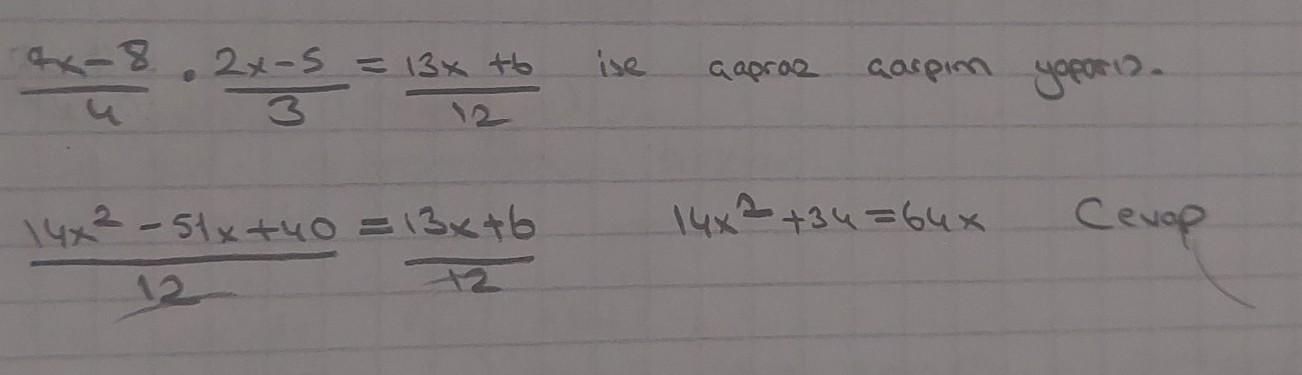 7x-8/4 . 2x-5/3 = 13x+6/12 ise çapraz çarpım yaparız.
14x²-51x+40/12 = 13x+6/12 14x²+34=64x Cevap